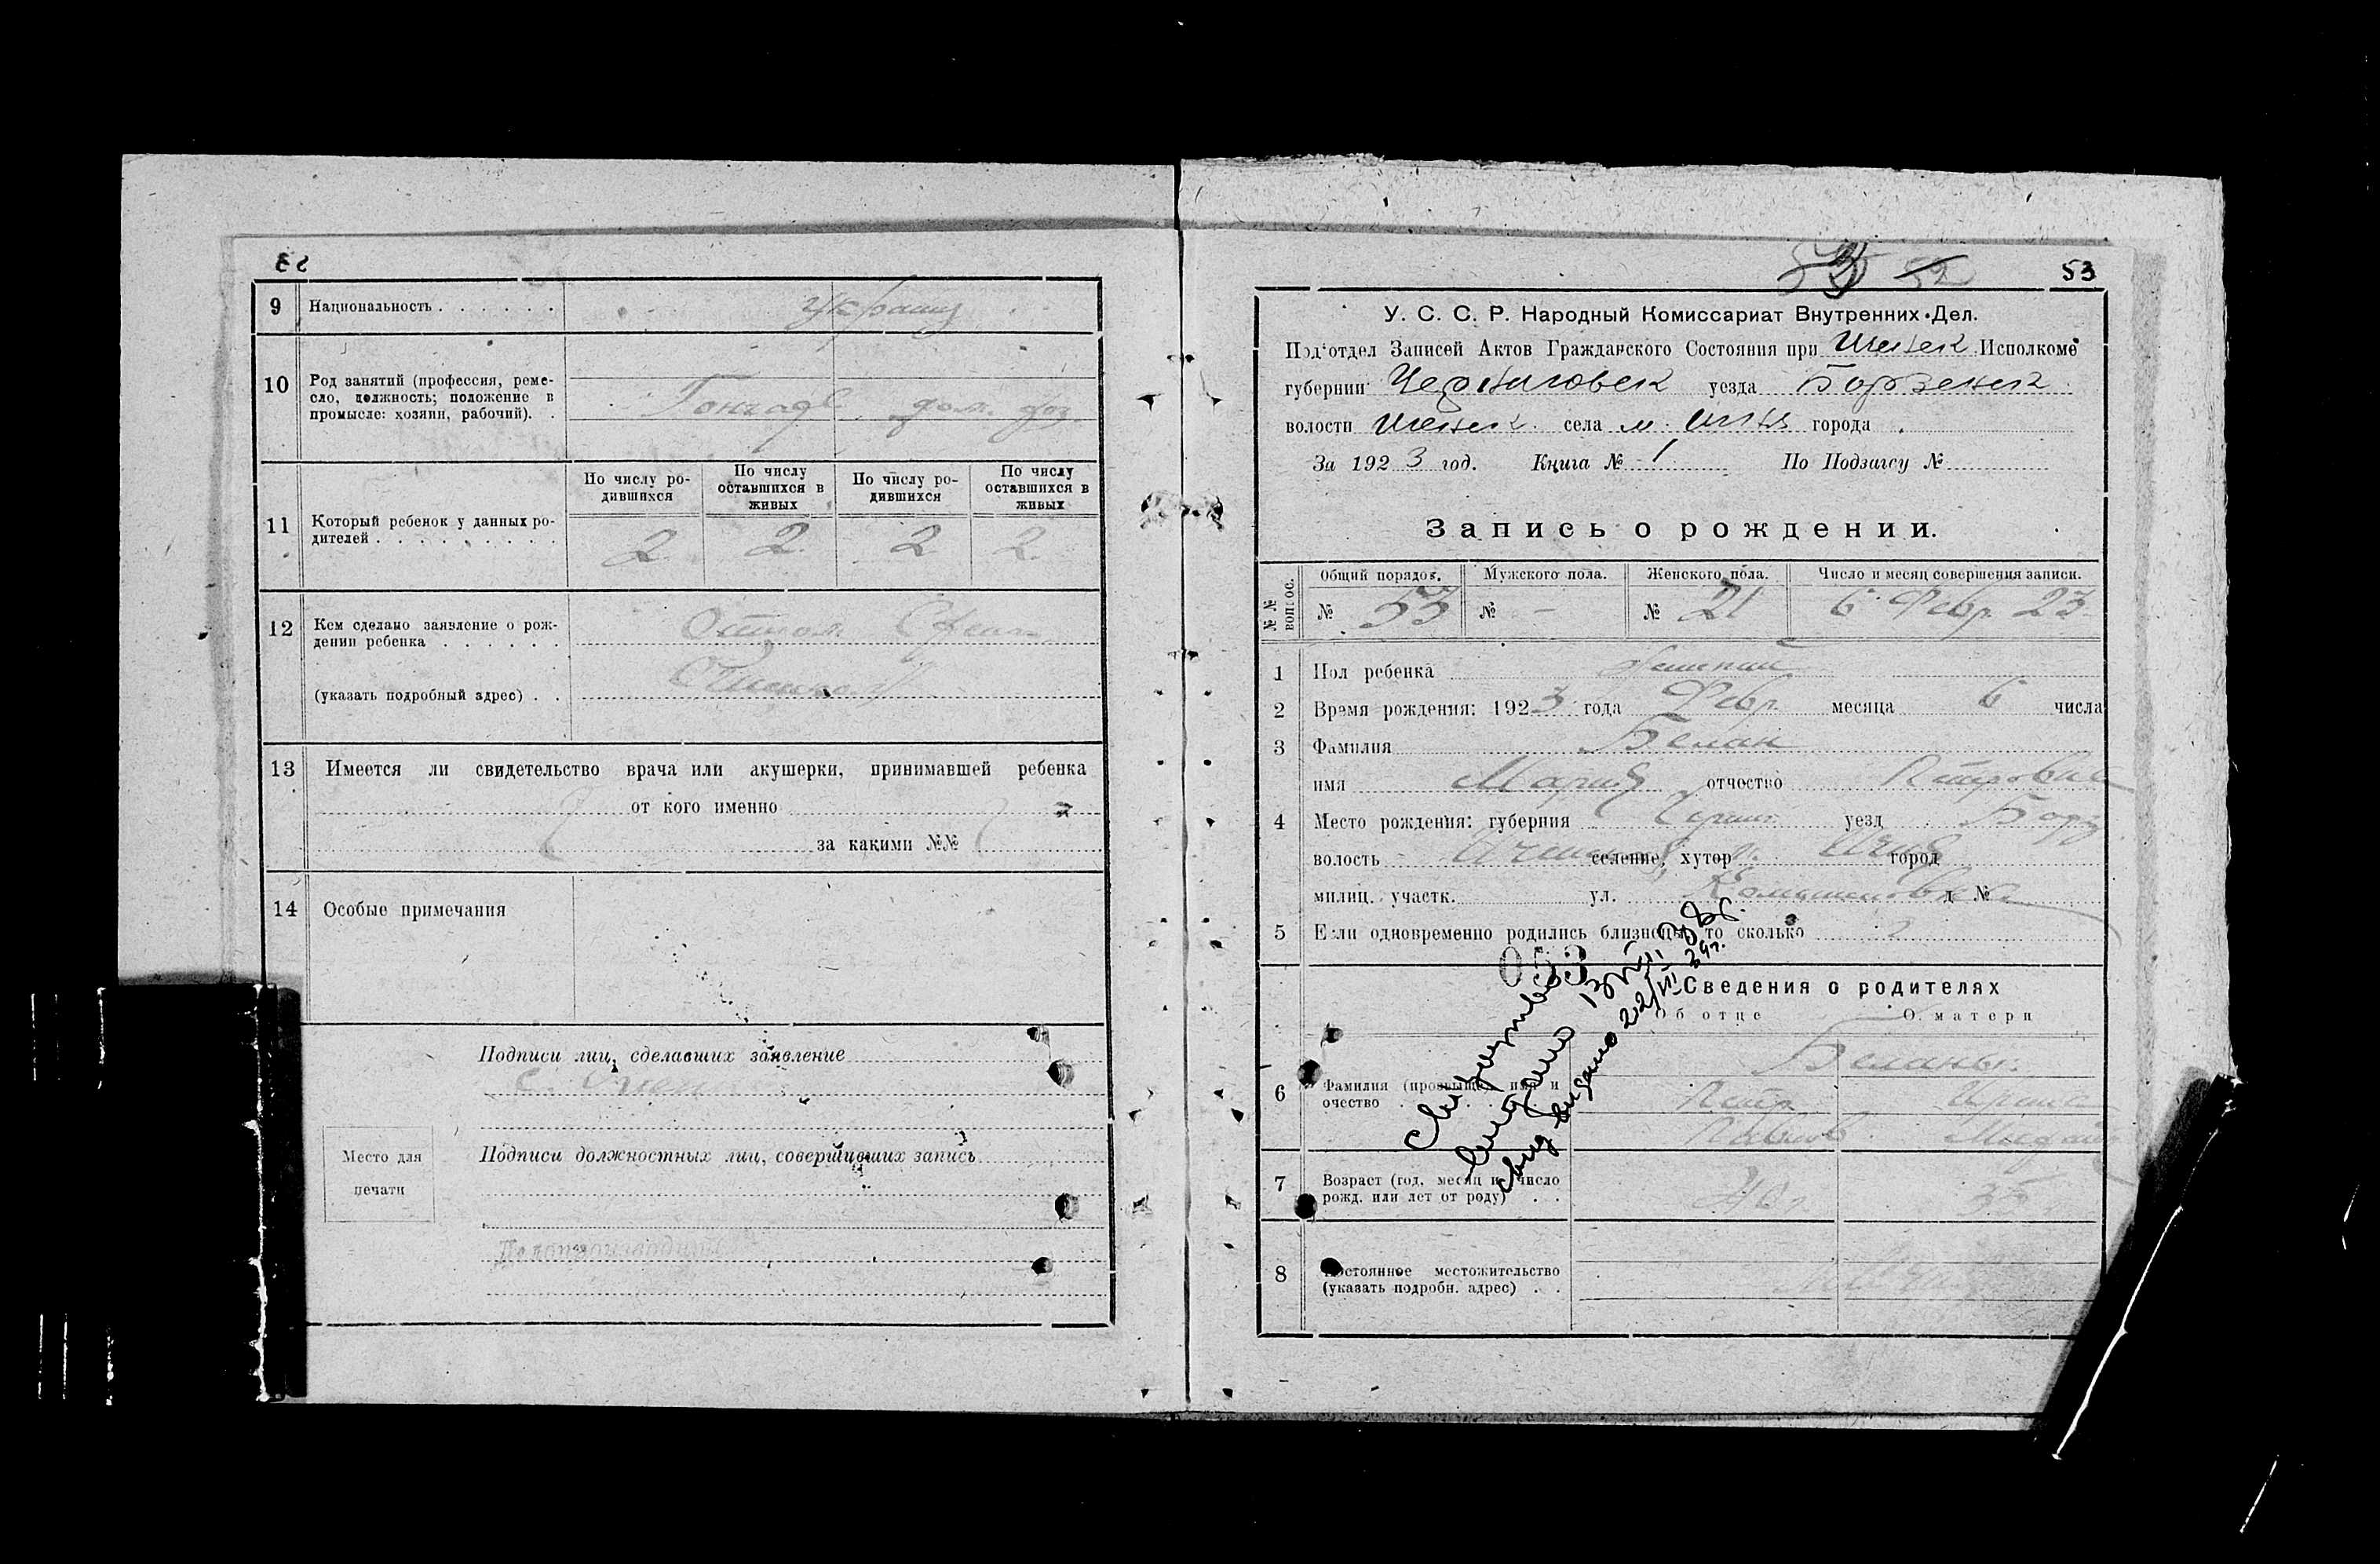 53
9 Национальность . . . . . .
украин
10 Род занятий (профессия, реме-
сло, должность; положение в
промысле: хозяин, рабочий). .
дом. хоз.
11 Который ребенок у данных ро-
дителей . . . . . . . . .
По числу ро-
дившихся
По числу
оставшихся в
живых
По числу ро-
дившихся
По числу
оставшихся в
живых
2 2 2 2
12 Кем сделано заявление о рож-
дении ребенка . . . . . .
(указать подробный адрес) . .
13 Имеется ли свидетельство врача или акушерки, принимавшей ребенка
от кого именно
за какими №№
14 Особые примечания
Подписи лиц, сделавших заявление
Место для
печати
Подписи должностных лиц, совершивших запись
Делопроизводит
53 52 53
У. С. С. Р. Народный Комиссариат Внутренних Дел.
Под'отдел Записей Актов Гражданского Состояния при Ичнек Исполкоме
губернии Черниговск уезда Борзенск
волости Ичнск. села м. Ичня города
За 1923 год. Книга № 1 По Подзагсу №
Запись о рождении.
№№ вопрос.
Общий порядок. Мужского пола. Женского пола. Число и месяц совершения записи.
№ 53 № - № 21 6 Февр. 23
1 Пол ребенка Женский
2 Время рождения: 1923 года Февр. месяца 6 числа
3 Фамилия Белан
имя Мария отчество Петровна
4 Место рождения: губерния Черниг. уезд Борз
волость Ичнянск селение, хутор м. Ичня город
милиц. участк. ул. д №
5 Если одновременно родились близнецы, то сколько 2
053
Свидетельство
выдано
Свид выдано 22/VII 39г.
Сведения о родителях
Об отце О матери
6 Фамилия (прозвище), имя и
очество
Беланы
Петр Ирина
Павлов
7 Возраст (год, месяц и число
рожд. или лет от роду) . .
40 35
8 Постоянное местожительство
(указать подробн. адрес) . .